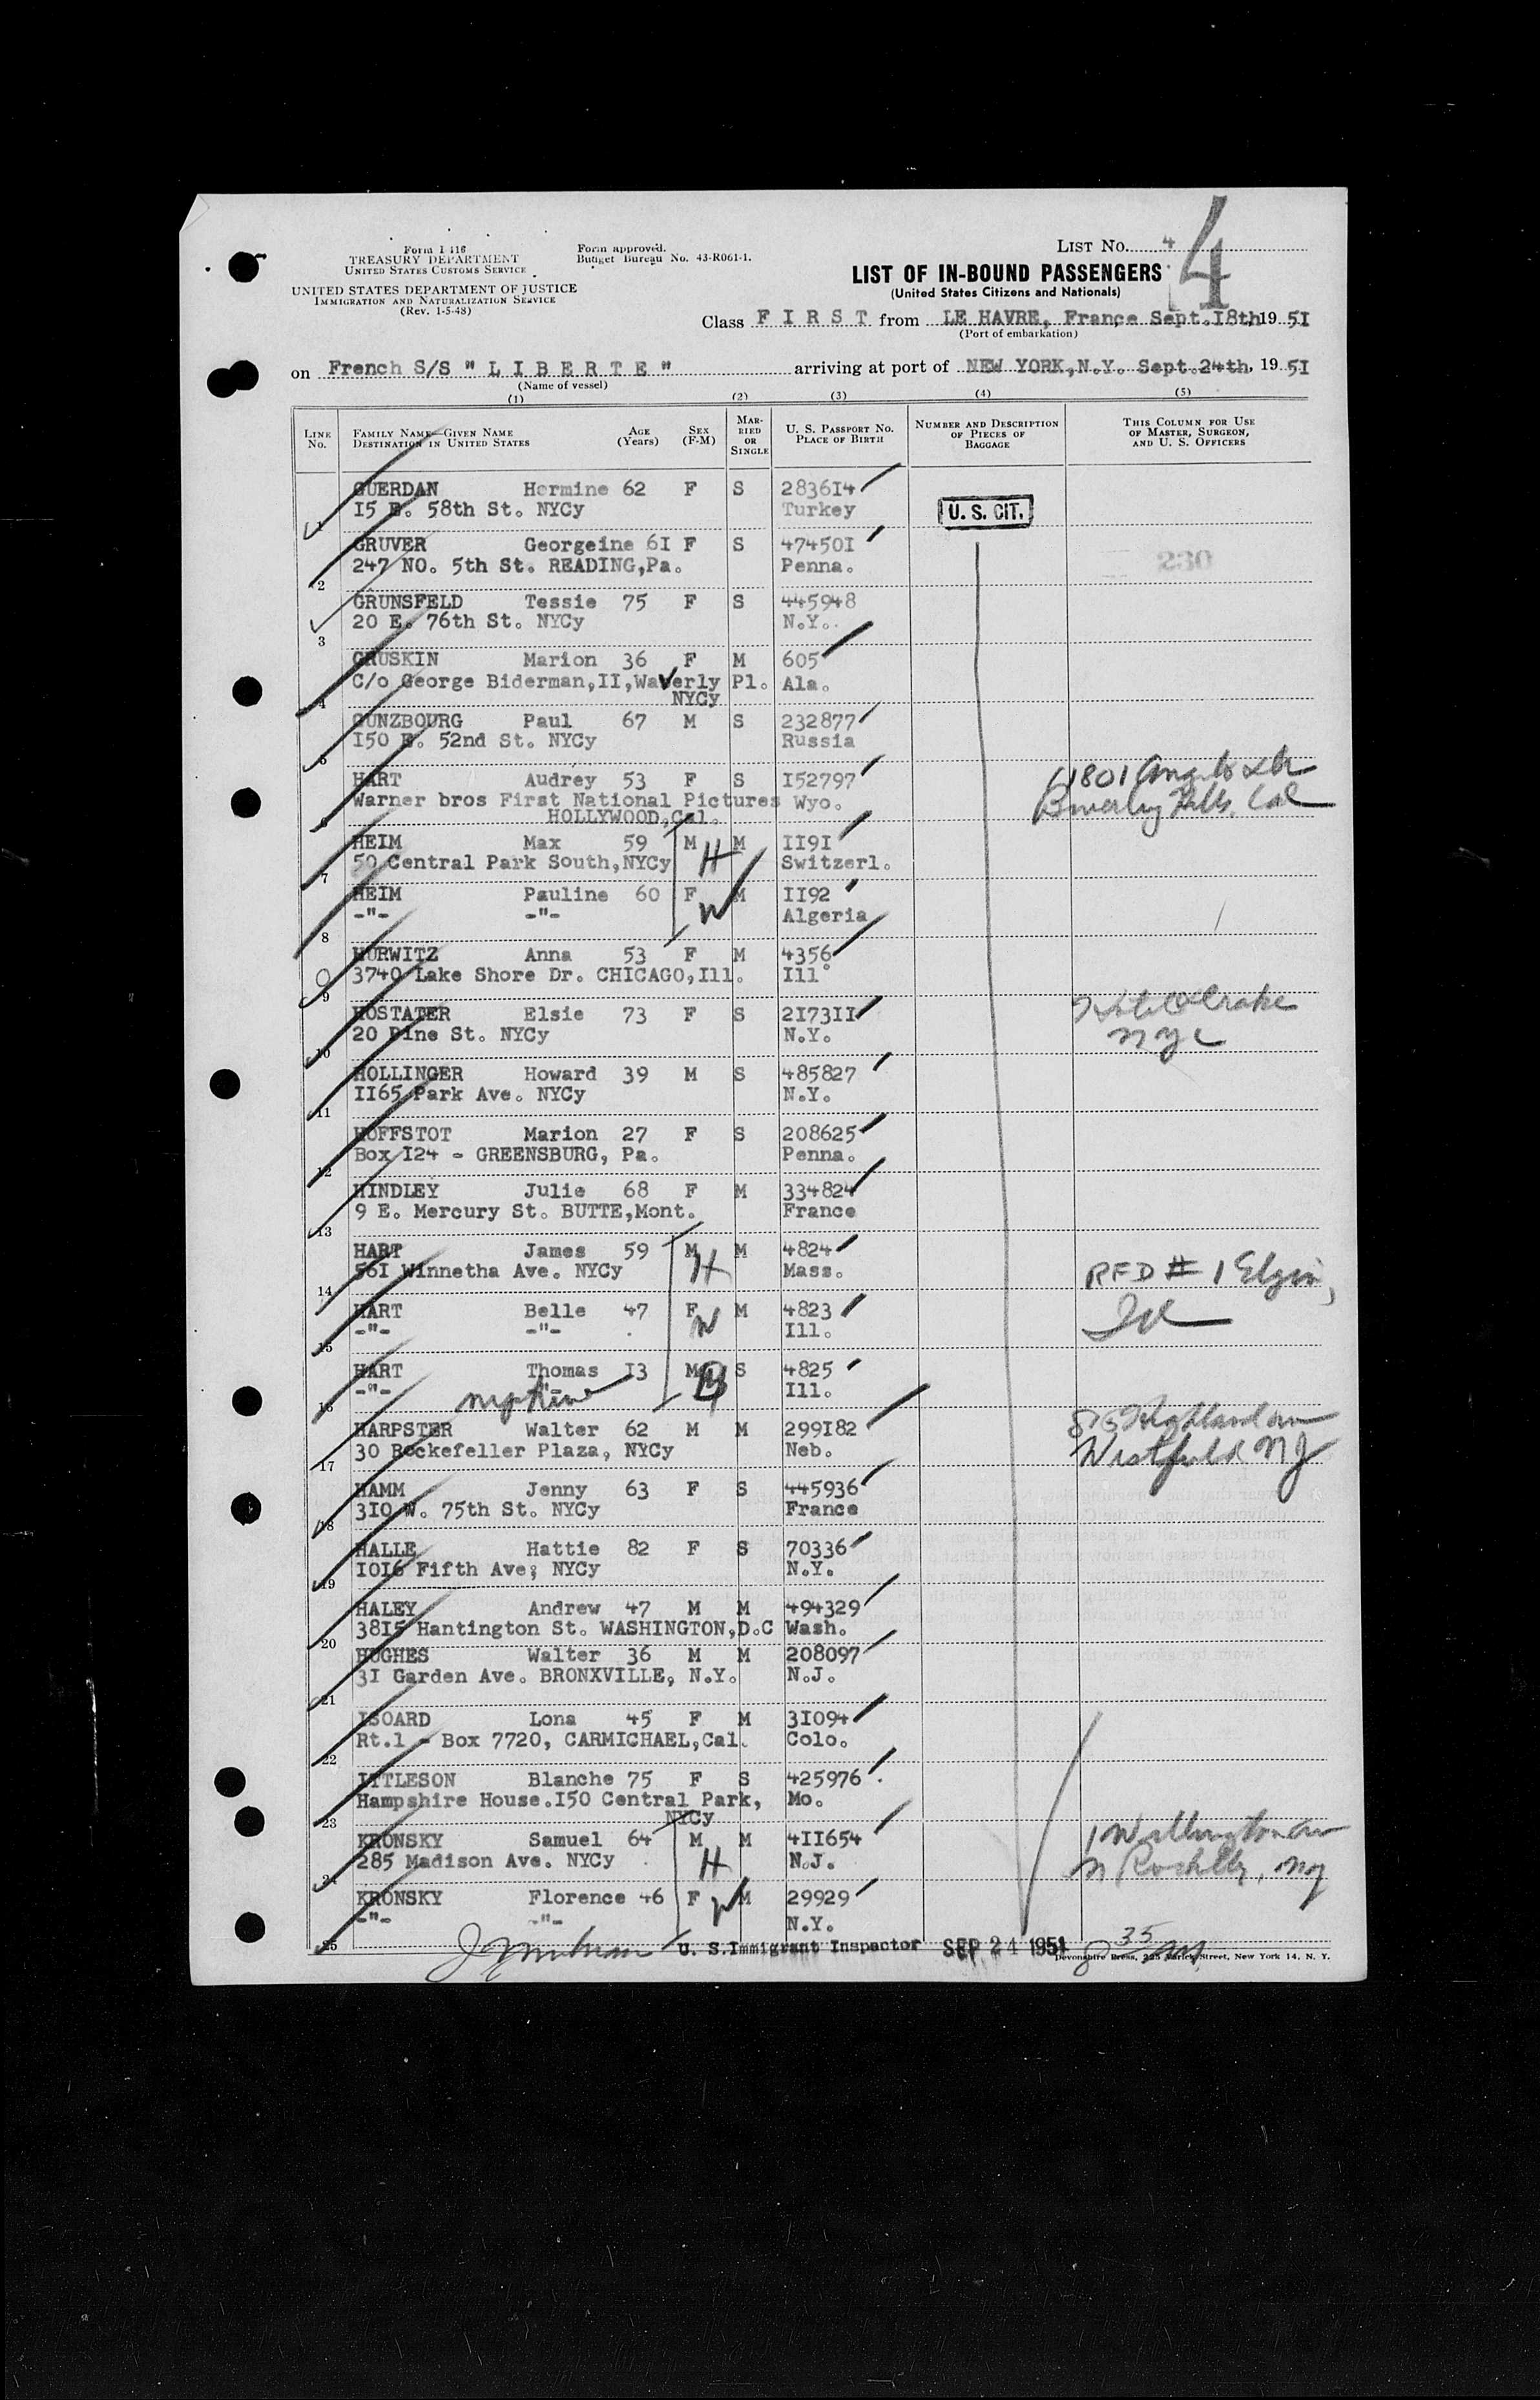 Form I 416
TREASURY DEPARTMENT
UNITED STATES CUSTOMS SERVICE
UNITED STATES DEPARTMENT OF JUSTICE
IMMIGRATION AND NATURALIZATION SERVICE
(Rev. 1-5-48)
Form approved.
Budget Bureau No. 43-R061-1.
LIST No. 4
4
LIST OF IN-BOUND PASSENGERS
(United States Citizens and Nationals)
Class F I R S T from LE HAVRE, France Sept.I8th, 19 5I
(Port of embarkation)
on French S/S " L I B E R T E " arriving at port of NEW YORK,N.Y. Sept.24th, 19 5I
(Name of vessel)
(1) (2) (3) (4) (5)
LINE No. FAMILY NAME—GIVEN NAME DESTINATION IN UNITED STATES AGE (Years) SEX (F-M) MARRIED OR SINGLE U. S. PASSPORT No. PLACE OF BIRTH NUMBER AND DESCRIPTION OF PIECES OF BAGGAGE THIS COLUMN FOR USE OF MASTER, SURGEON, AND U. S. OFFICERS
GUERDAN Hermine 62 F S 2836I4
1 I5 E. 58th St. NYCy Turkey U. S. CIT.
GRUVER Georgeine 6I F S 47450I
2 247 NO. 5th St. READING,Pa. Penna. 230
GRUNSFELD Tessie 75 F S 445948
3 20 E. 76th St. NYCy N.Y.
GRUSKIN Marion 36 F M 605
4 C/o George Biderman,II,Waverly Pl. Ala.
NYCy
GUNZBOURG Paul 67 M S 232877
5 I50 E. 52nd St. NYCy Russia
HART Audrey 53 F S I52797
6 Warner bros First National Pictures Wyo.
HOLLYWOOD,Cal.
1801 Angelo Dr
Beverly Hills, Cal
HEIM Max 59 M H M II9I
7 50 Central Park South,NYCy Switzerl.
HEIM Pauline 60 F W M II92
8 -"- -"- Algeria
HURWITZ Anna 53 F M 4356
9 3740 Lake Shore Dr. CHICAGO,Ill. Ill.
HOSTATER Elsie 73 F S 2I73II
10 20 Pine St. NYCy N.Y.
Hotel Drake
NYC
HOLLINGER Howard 39 M S 485827
11 II65 Park Ave. NYCy N.Y.
HOFFSTOT Marion 27 F S 208625
12 Box I24 - GREENSBURG, Pa. Penna.
HINDLEY Julie 68 F M 334824
13 9 E. Mercury St. BUTTE,Mont. France
HART James 59 M H M 4824
14 56I Winnetha Ave. NYCy Mass.
RFD # 1 Elgin,
Ill
HART Belle 47 F W M 4823
15 -"- -"- Ill.
HART Thomas I3 M S 4825
16 -"- -"- Ill.
nephew
HARPSTER Walter 62 M M 299I82
17 30 Rockefeller Plaza, NYCy Neb.
Highland Ave
Westfield NJ
HAMM Jenny 63 F S 445936
18 3I0 W. 75th St. NYCy France
HALLE Hattie 82 F S 70336
19 I0I6 Fifth Ave; NYCy N.Y.
HALEY Andrew 47 M M 494329
20 38I5 Hantington St. WASHINGTON,D.C Wash.
HUGHES Walter 36 M M 208097
21 3I Garden Ave. BRONXVILLE, N.Y. N.J.
ISOARD Lona 45 F M 3I094
22 Rt.1 - Box 7720, CARMICHAEL,Cal. Colo.
ITTLESON Blanche 75 F S 425976
23 Hampshire House.I50 Central Park, Mo.
NYCy
KRONSKY Samuel 64 M H M 4II654
24 285 Madison Ave. NYCy N.J.
1 Wellington Ave
N Rochelle, NY
KRONSKY Florence 46 F W M 29929
25 -"- -"- N.Y.
U. S. Immigrant Inspector SEP 24 1951 35
Devonshire Press, 225 Varick Street, New York 14, N. Y.